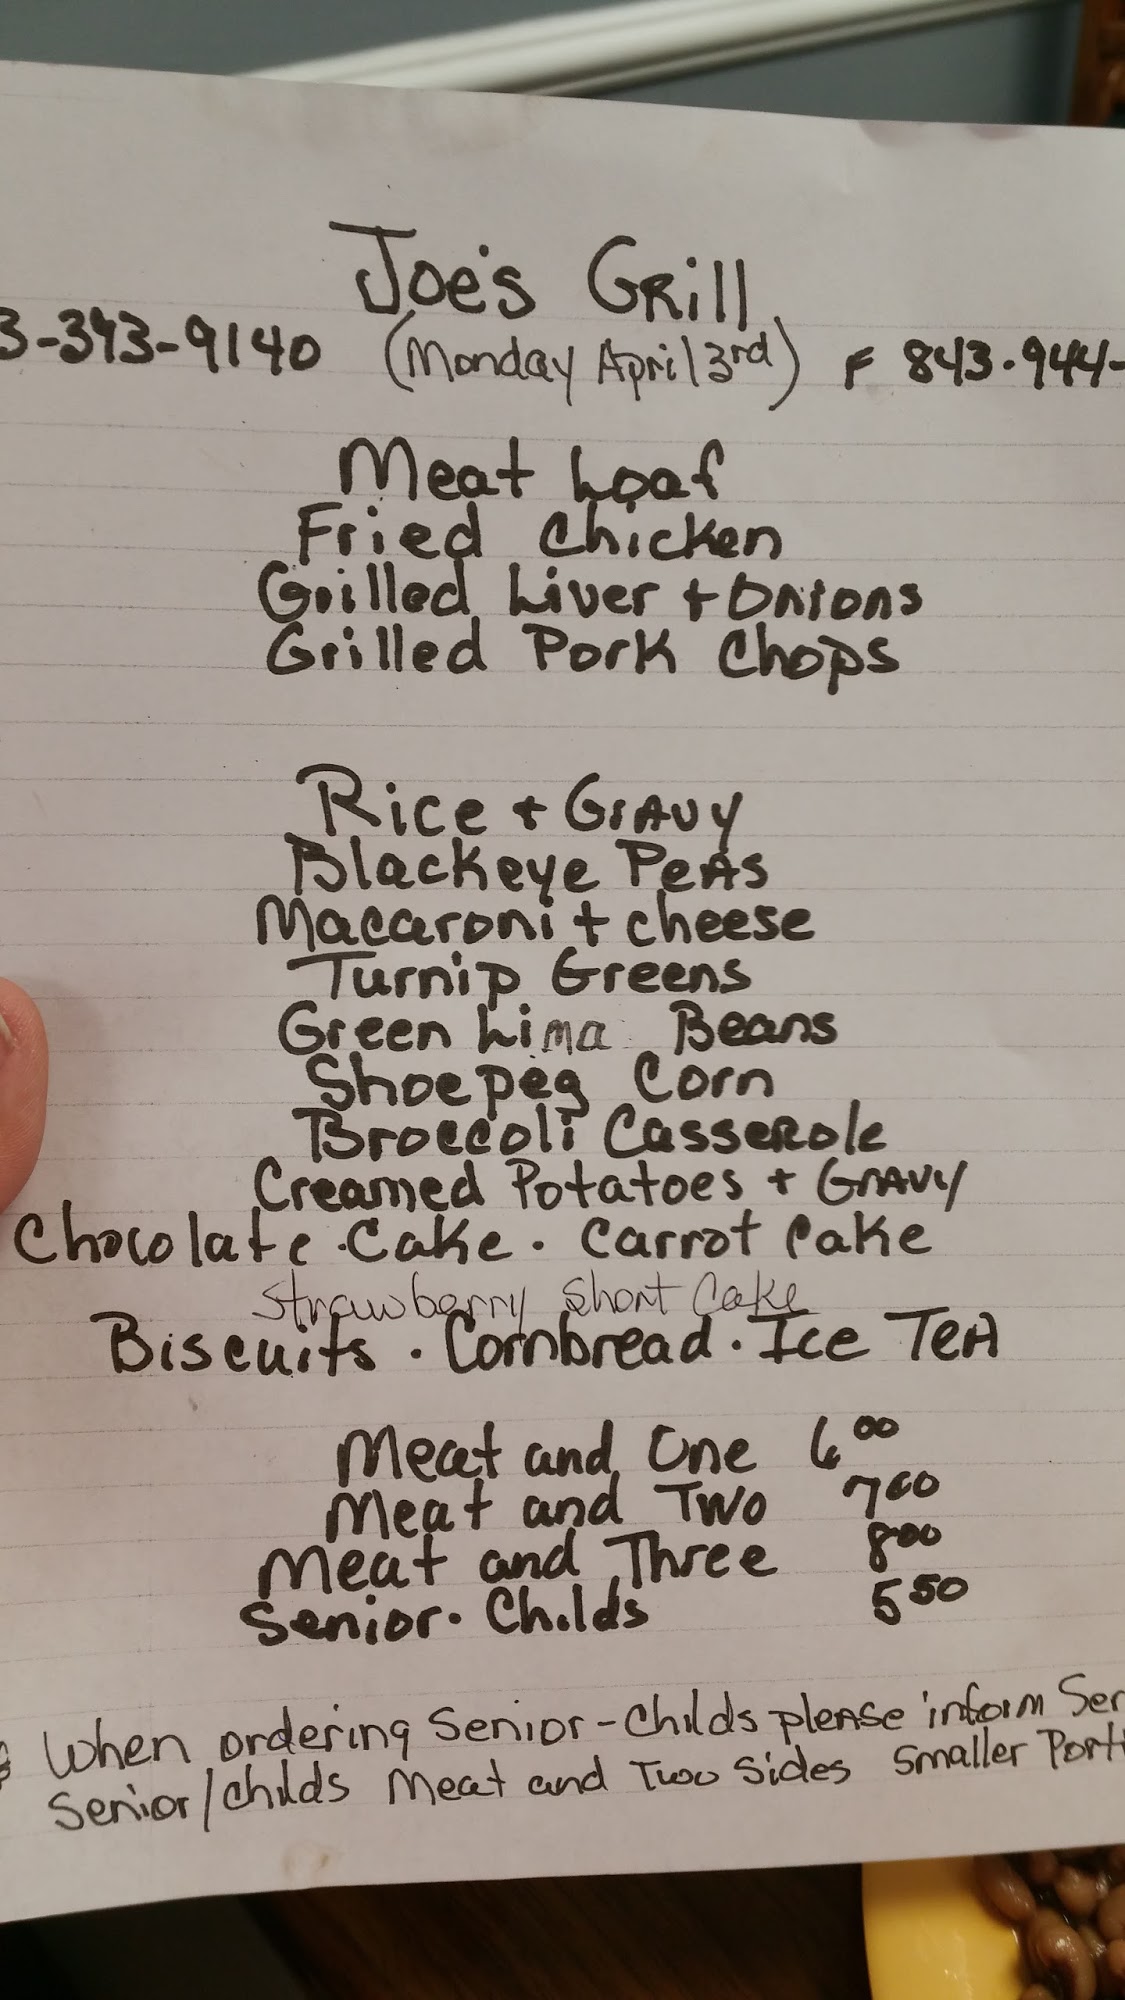 Joe's Grill
3-393-9140 (Monday April 3rd) F 843.944-
Meat Loaf
Fried Chicken
Grilled Liver + Onions
Grilled Pork Chops
Rice + Gravy
Blackeye Peas
Macaroni + cheese
Turnip Greens
Green Lima Beans
Shoepeg Corn
Broccoli Casserole
Creamed Potatoes + Gravy
Chocolate Cake . Carrot Cake
Strawberry Short Cake
Biscuits . Cornbread . Ice Tea
Meat and One 6 00
Meat and Two 7 00
Meat and Three 8 00
Senior . Childs 5 50
When ordering Senior - Childs please inform Ser
Senior/Childs Meat and Two Sides Smaller Porti